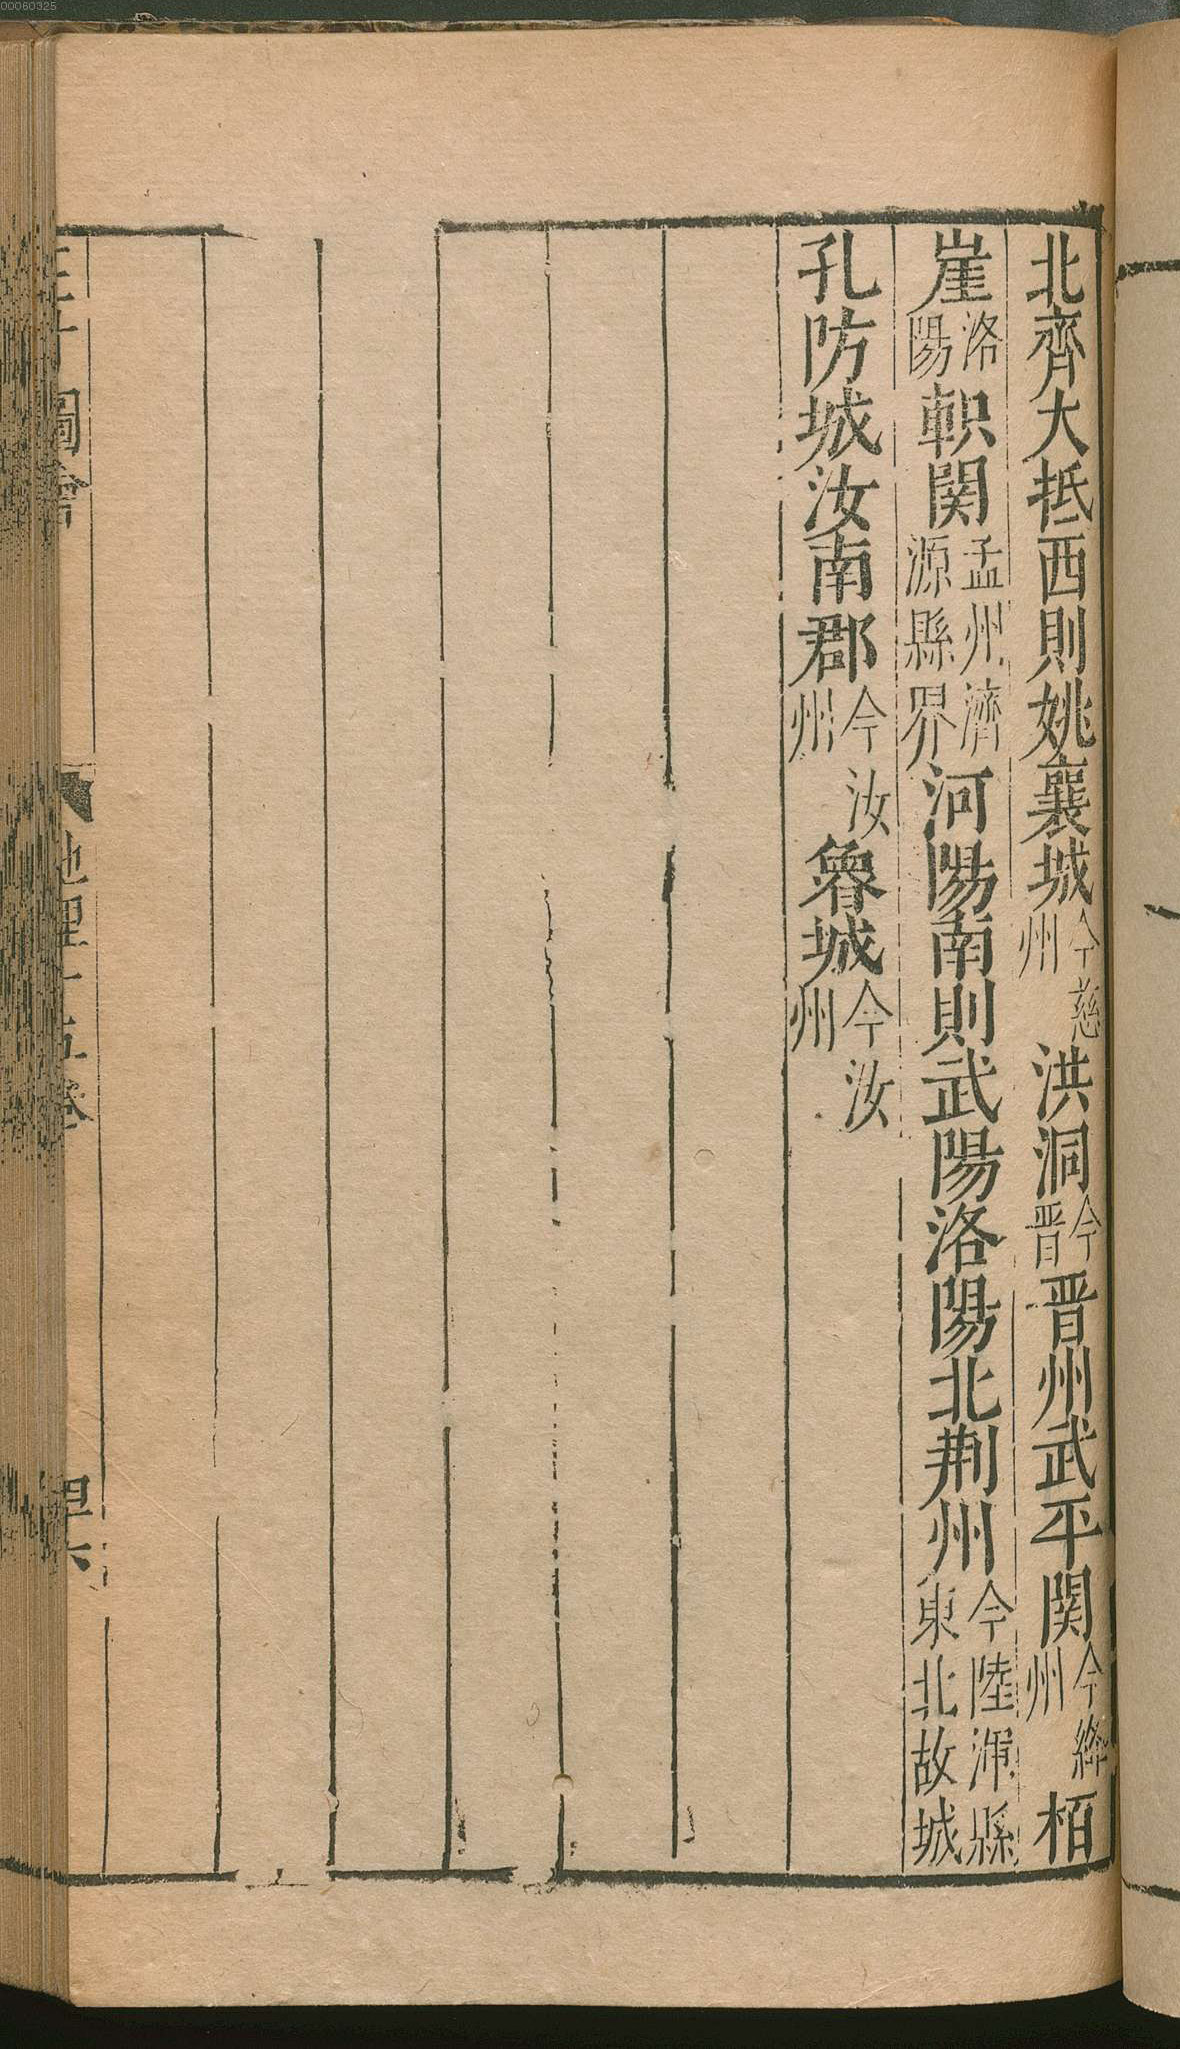 北齊大抵西則姚襄城今慈州洪洞今晋晋州武平関今絳州栢
崖洛陽軹関孟州濟源縣界河陽南則武陽洛陽北荆州今陸渾縣東北故城
孔防城汝南郡今汝州魯城今汝州
圖會
地理十五卷
00060325